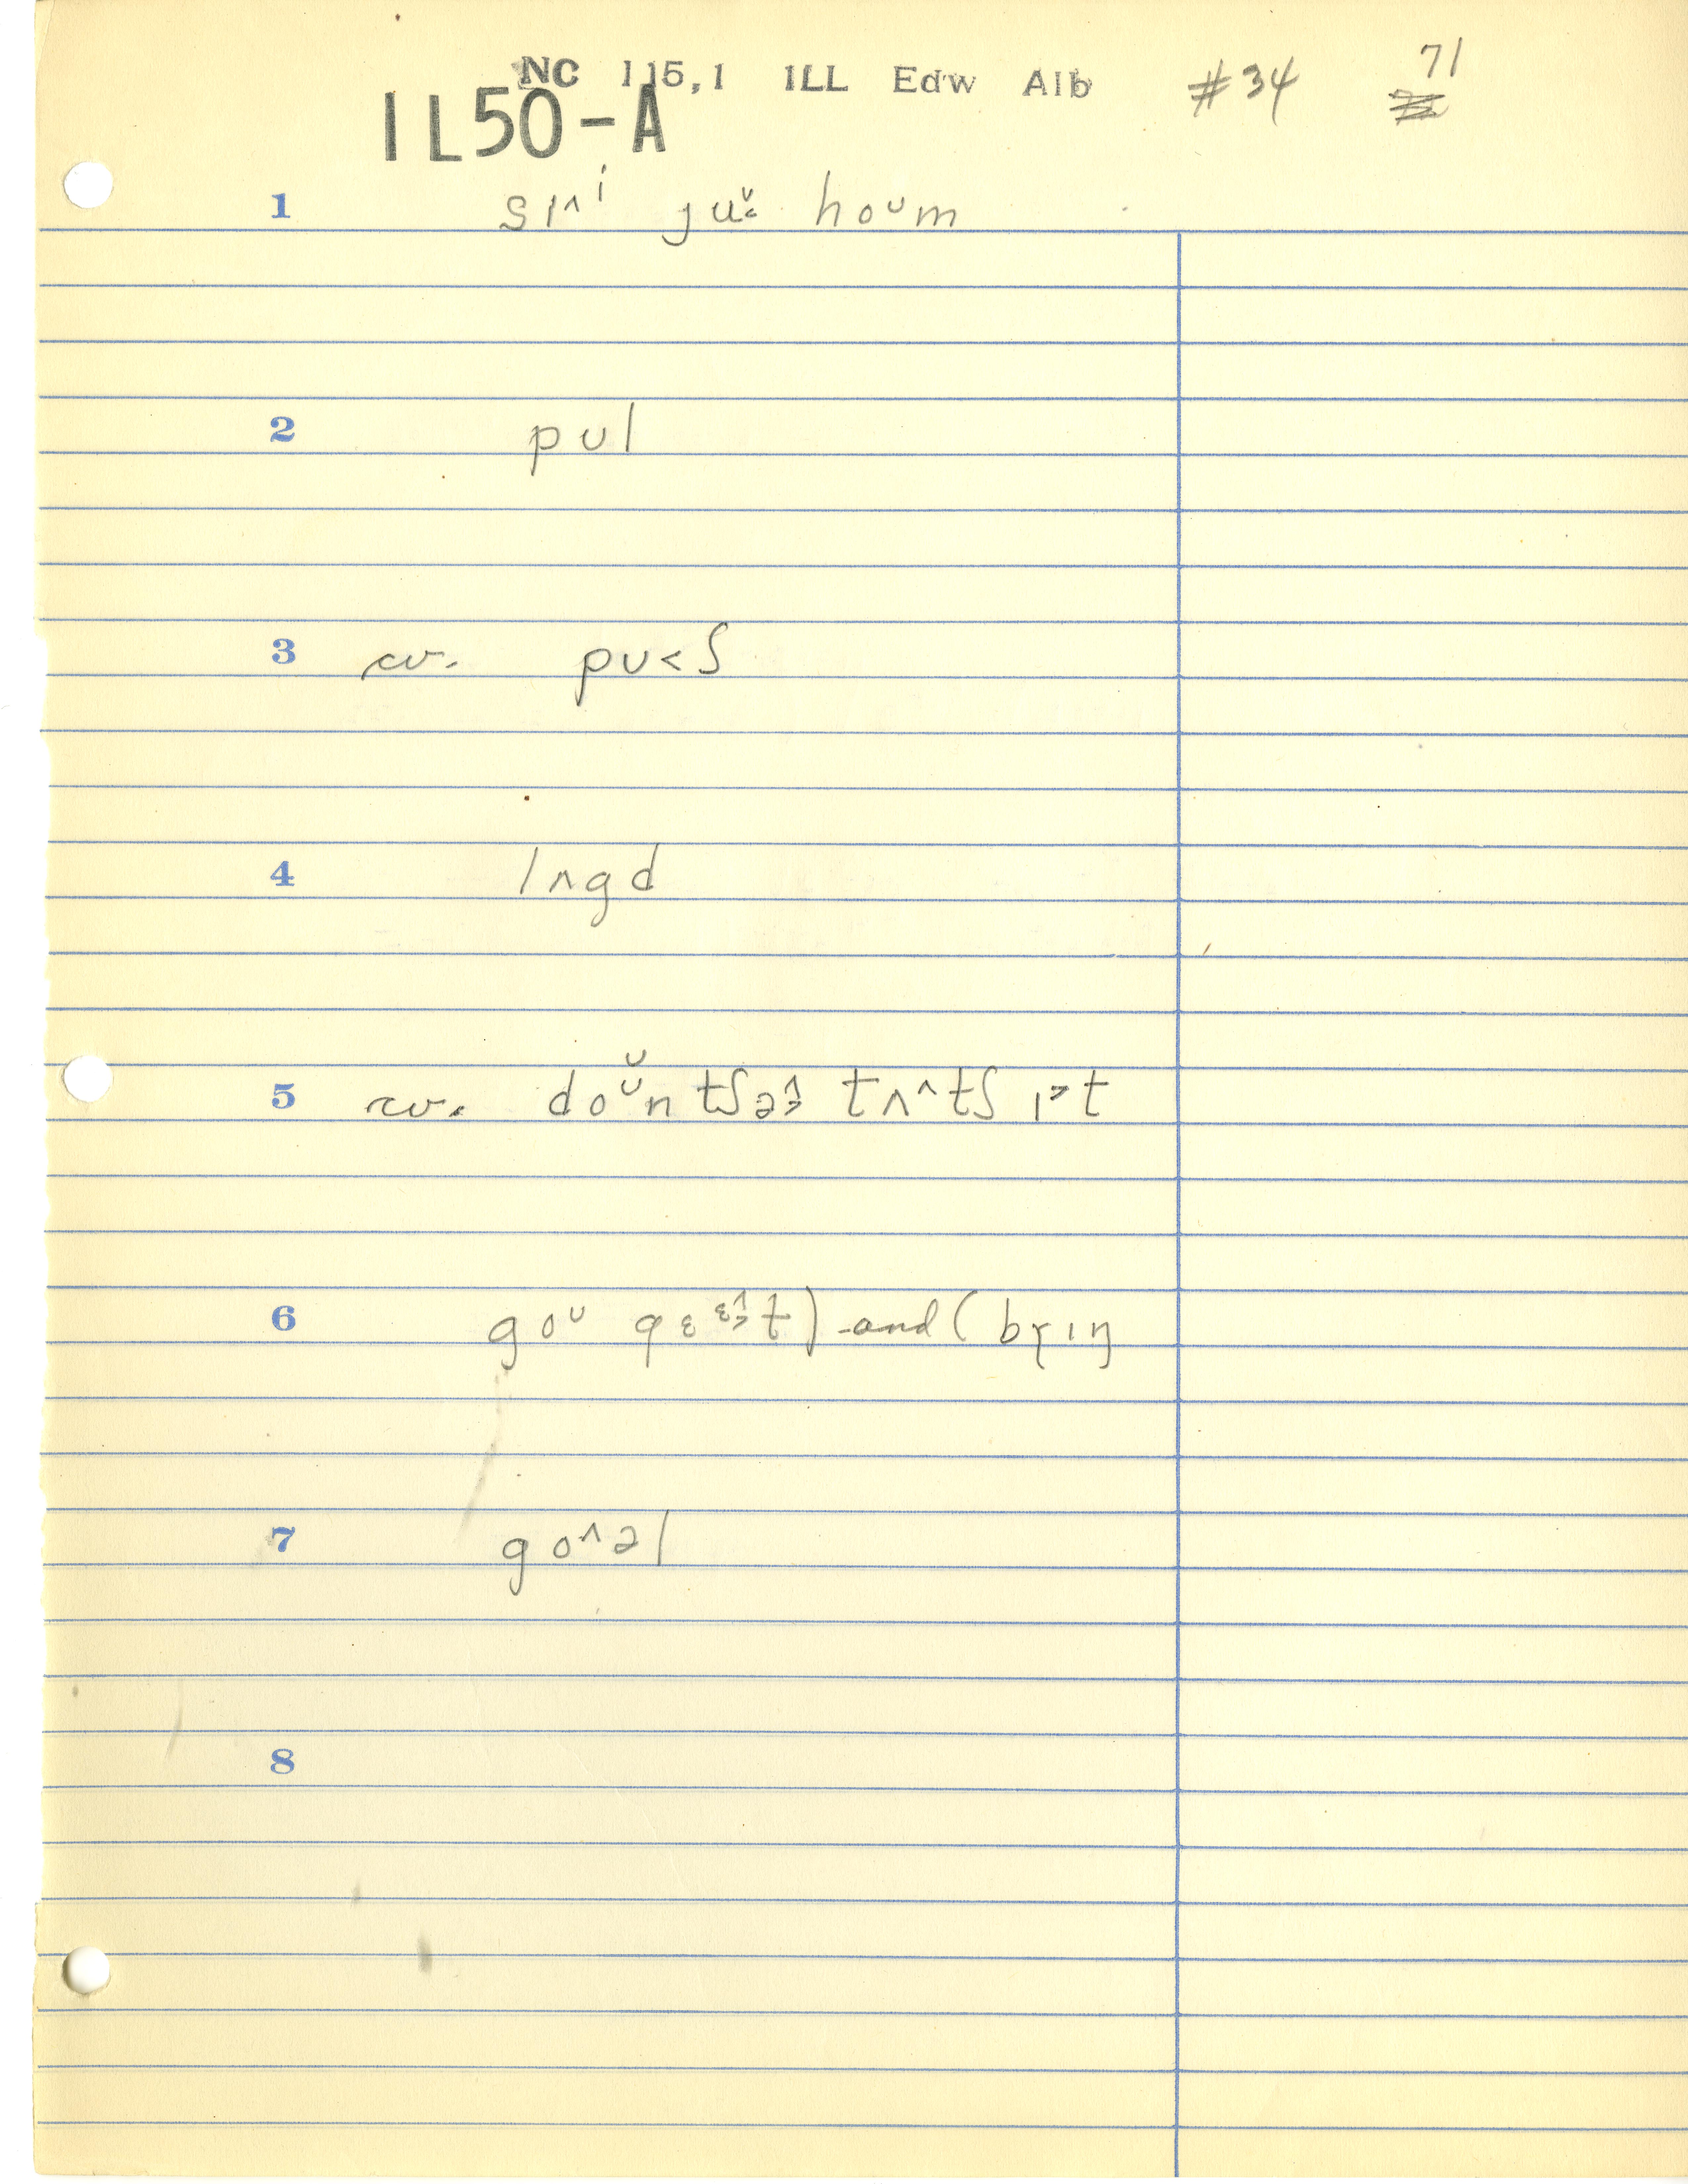 NC 115,1 ILL Edw Alb #34 71
IL50-A
1 sɪ^i ju̬˞ hoᴜm
2 pᴜl
3 cv. pᴜ<ʃ
4 lʌgd
5 cv. doᴜ̆n tʃə tʌ^tʃ ɪ>t
6 goᴜ gɛɛ^t) and (brɪŋ
7 go^əl
8